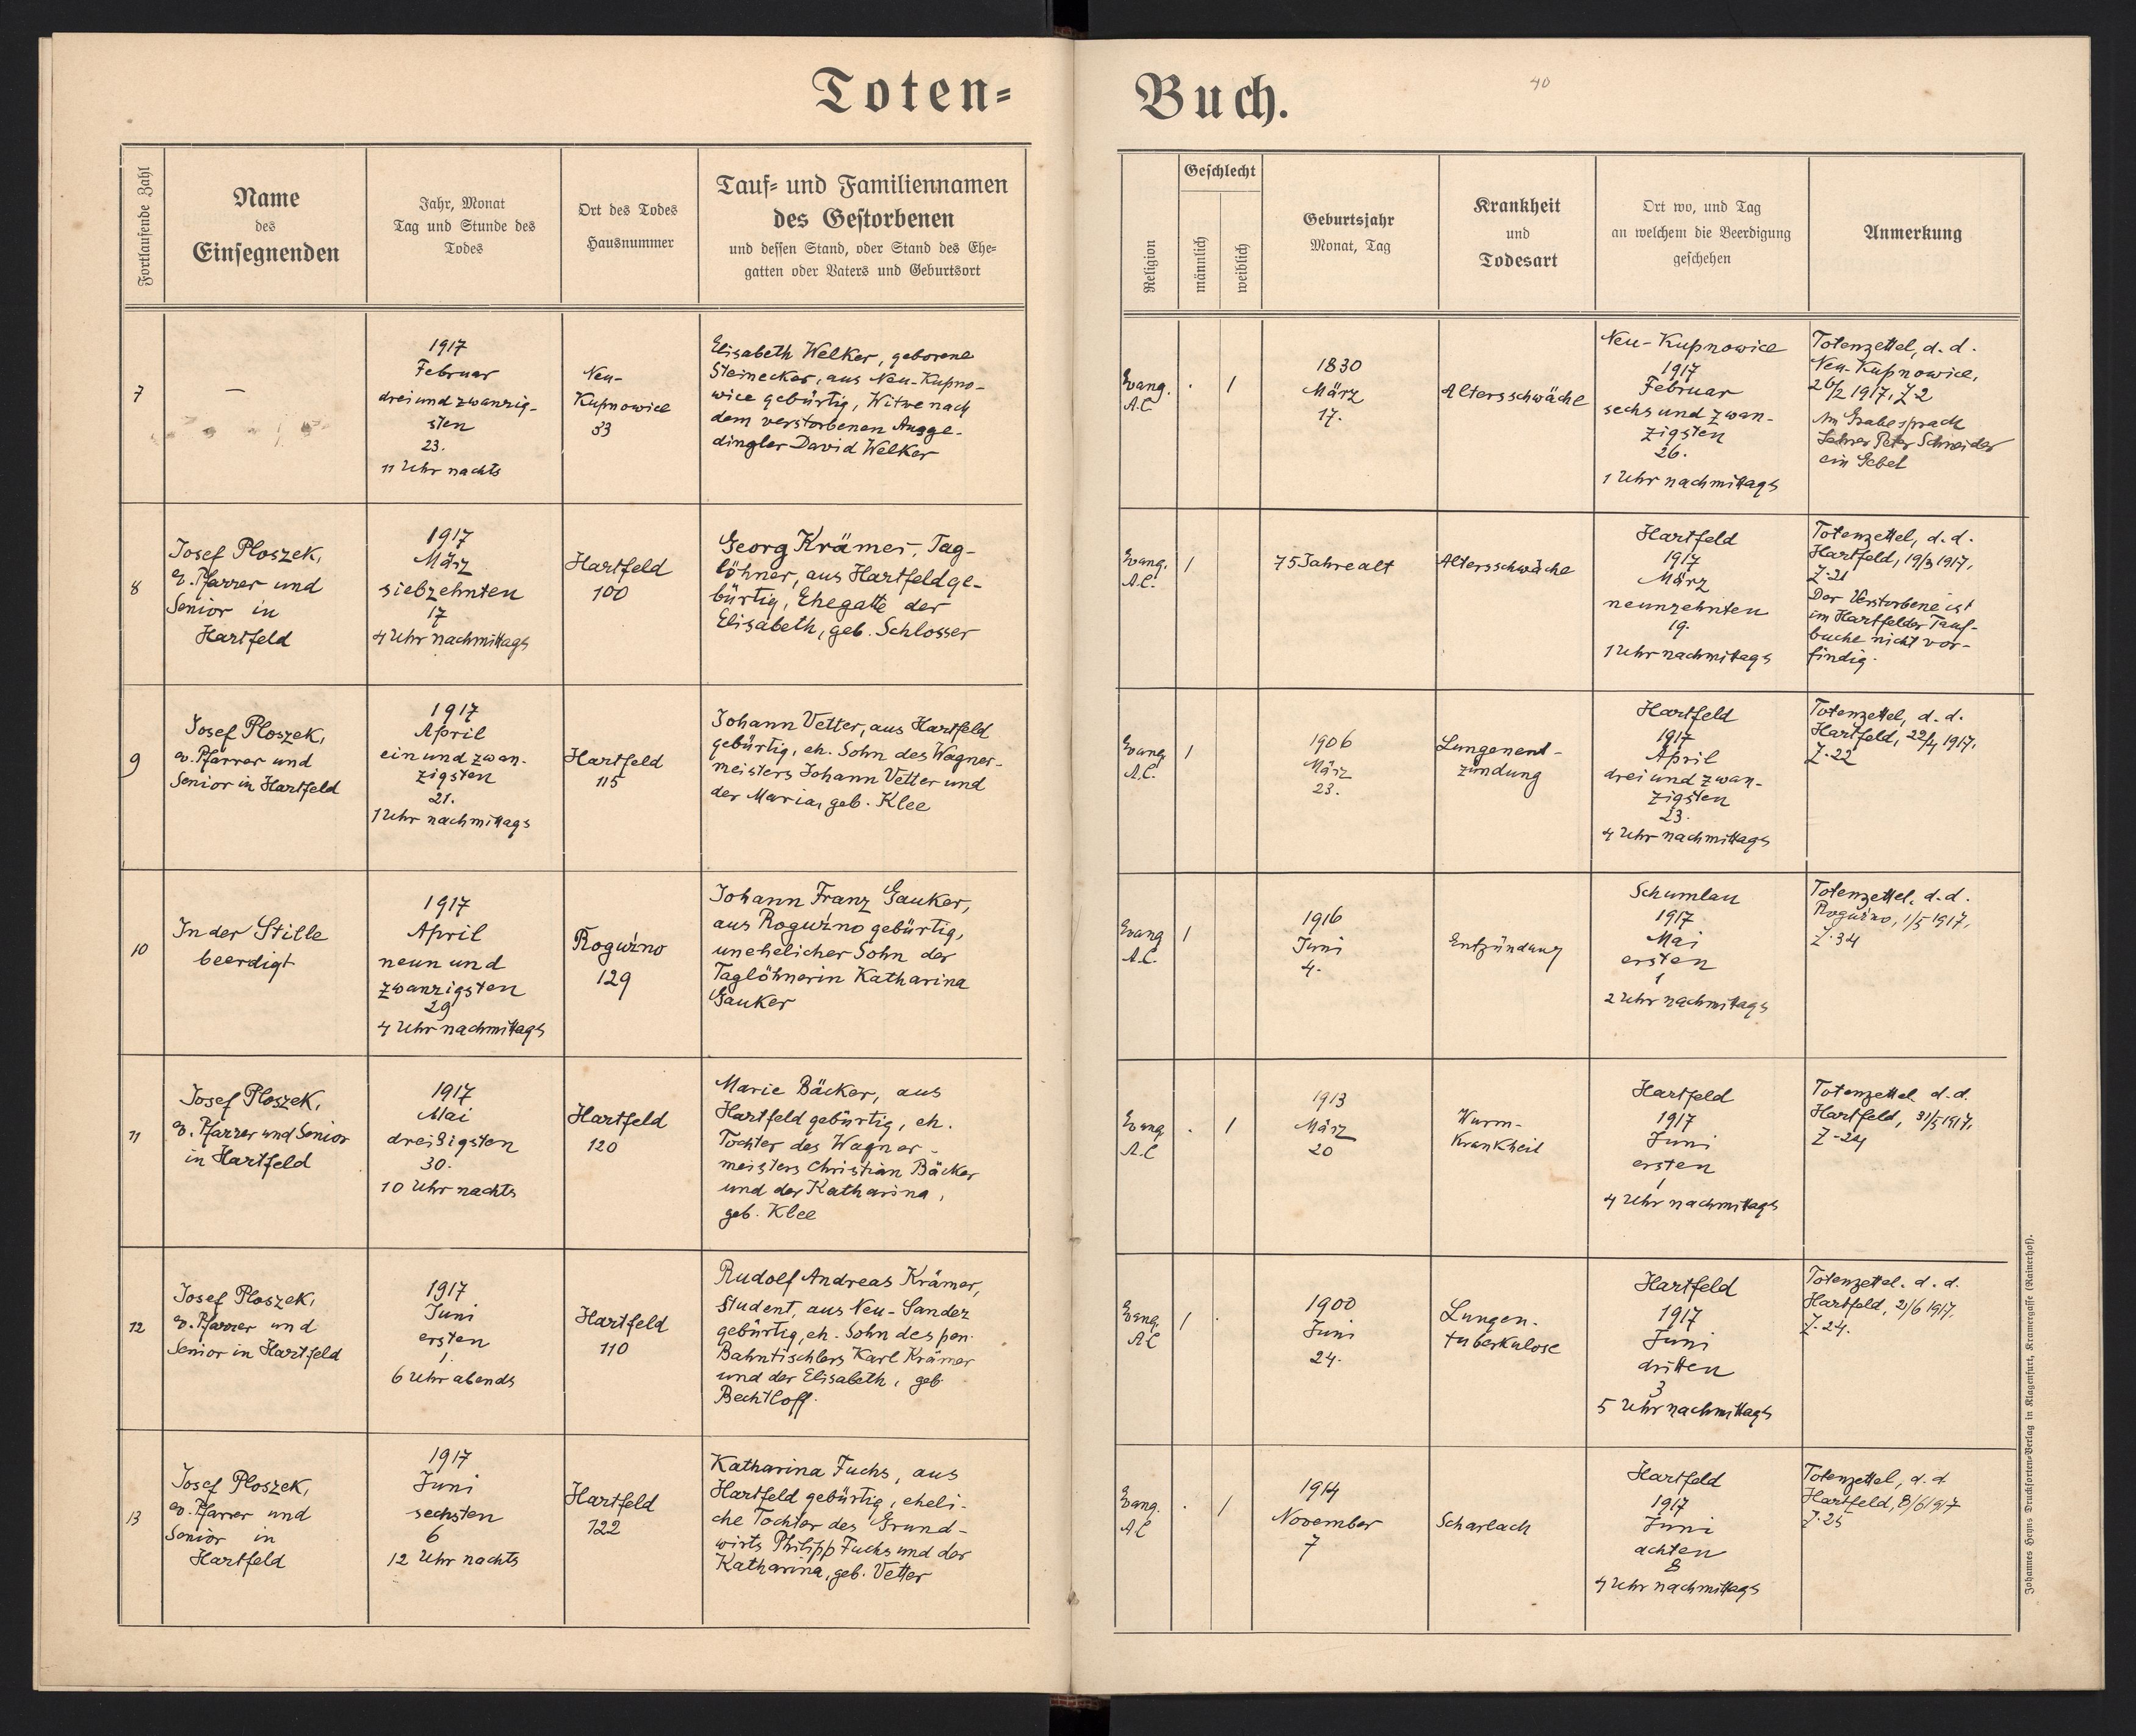 Toten=
Buch.
40
Fortlaufende Zahl
Name
des
Einsegnenden
Jahr, Monat
Tag und Stunde des
Todes
Ort des Todes
Hausnummer
Tauf= und Familiennamen
des Gestorbenen
und dessen Stand, oder Stand des Ehe=
gatten oder Vaters und Geburtsort
Religion
Geschlecht
männlich
weiblich
Geburtsjahr
Monat, Tag
Krankheit
und
Todesart
Ort wo, und Tag
an welchem die Beerdigung
geschehen
Anmerkung
7
—
1917
Februar
dreiundzwanzig-
sten
23.
11 Uhr nachts
Neu-
Kupnowice
33
Elisabeth Welker, geborene
Steinecker, aus Neu-Kupno-
wice gebürtig, Witwe nach
dem verstorbenen Ausge-
dingler David Welker
Evang.
A.C.
.
1
1830
März
17.
Altersschwäche
Neu-Kupnowice
1917
Februar
sechs und zwan-
zigsten
26.
1 Uhr nachmittags
Totenzettel, d. d.
Neu-Kupnowice,
26/2 1917, Z 2
Am Grabe sprach
Lehrer Peter Schneider
ein Gebet
8
Josef Ploszek,
ev. Pfarrer und
Senior in
Hartfeld
1917
März
siebzehnten
17
4 Uhr nachmittags
Hartfeld
100
Georg Krämer, Tag-
löhner, aus Hartfeld ge-
bürtig, Ehegatte der
Elisabeth, geb. Schlosser
Evang.
A.C.
1
75 Jahre alt
Altersschwäche
Hartfeld
1917
März
neunzehnten
19.
1 Uhr nachmittags
Totenzettel, d. d.
Hartfeld, 19/3 1917,
Z. 21
Der Verstorbene ist
im Hartfelder Tauf-
buche nicht vor-
findig.
9
Josef Ploszek,
ev. Pfarrer und
Senior in Hartfeld
1917
April
ein und zwan-
zigsten
21.
1 Uhr nachmittags
Hartfeld
115
Johann Vetter, aus Hartfeld
gebürtig, eh. Sohn des Wagner-
meisters Johann Vetter und
der Maria, geb. Klee
Evang.
A.C.
1
1906
März
23.
Lungenent-
zündung
Hartfeld
1917
April
drei und zwan-
zigsten
23.
4 Uhr nachmittags
Totenzettel, d. d.
Hartfeld, 22/4 1917,
Z. 22
10
In der Stille
beerdigt
1917
April
neun und
zwanzigsten
29
4 Uhr nachmittags
Roguźno
129
Johann Franz Gauker,
aus Roguźno gebürtig,
unehelicher Sohn der
Taglöhnerin Katharina
Gauker
Evang
A.C.
1
1916
Juni
4.
Entzündung
Schumlau
1917
Mai
ersten
1
2 Uhr nachmittags
Totenzettel, d. d.
Roguźno, 1/5 1917,
Z. 34
11
Josef Ploszek,
ev. Pfarrer und Senior
in Hartfeld
1917
Mai
dreißigsten
30.
10 Uhr nachts
Hartfeld
120
Marie Bäcker, aus
Hartfeld gebürtig, eh.
Tochter des Wagner-
meisters Christian Bäcker
und der Katharina,
geb. Klee
Evang
A.C
.
1
1913
März
20
Wurm-
Krankheit
Hartfeld
1917
Juni
ersten
1
4 Uhr nachmittags
Totenzettel d. d.
Hartfeld, 31/5 1917,
Z-24
12
Josef Ploszek,
ev. Pfarrer und
Senior in Hartfeld
1917
Juni
ersten
1.
6 Uhr abends
Hartfeld
110
Rudolf Andreas Krämer,
Student, aus Neu-Sandez
gebürtig, eh. Sohn des pen.
Bahntischlers Karl Krämer
und der Elisabeth, geb.
Bechtloff.
Evang.
AC
1
.
1900
Juni
24.
Lungen-
tuberkulose
Hartfeld
1917
Juni
dritten
3
5 Uhr nachmittags
Totenzettel. d. d.
Hartfeld, 2/6 1917,
Z. 24.
13
Josef Ploszek,
ev. Pfarrer und
Senior in
Hartfeld
1917
Juni
sechsten
6
12 Uhr nachts
Hartfeld
122
Katharina Fuchs, aus
Hartfeld gebürtig, eheli-
che Tochter des Grund-
wirts Philipp Fuchs und der
Katharina, geb. Vetter
Evang.
A.C
.
1
1914
November
7
Scharlach
Hartfeld
1917
Juni
achten
8
4 Uhr nachmittags
Totenzettel, d. d
Hartfeld, 8/6 1917
Z. 25
Johannes Heyns Drucksorten=Verlag in Klagenfurt, Kramergasse (Rainerhof).